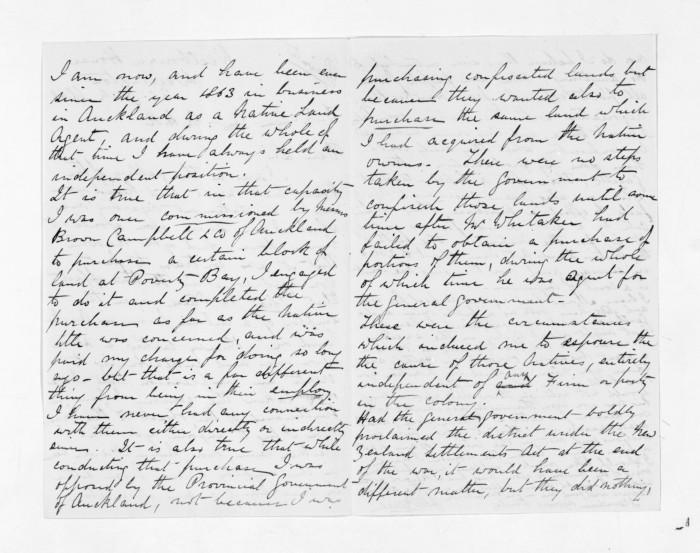 I am now, and have been ever
since the year 1863 in business
in Auckland as a Native Land
Agent, and during the whole of
that time I have always held an
independent position.
It is true that in that capacity
I was once commissioned by Messrs
Brown Campbell & Co of Auckland
to purchase a certain block of
land at Poverty Bay, I engaged
to do it and completed the
purchase as far as the Native
title was concerned, and was
paid my charge for doing so long
ago — but that is a far different
thing from being in their employ
I have never had any connection
with them either directly or indirectly
since. It is also true that while
conducting that purchase I was
opposed by the Provincial Government
of Auckland, not because I was
purchasing confiscated lands but
because they wanted also to
purchase the same land which
I had acquired from the Native
owners — There were no steps
taken by the Government to
confiscate those lands until some
time after Mr Whitaker had
failed to obtain a purchase of
portions of them, during the whole
of which time he was agent for
the General Government —
These were the circumstances
which induced me to espouse the
the cause of those Natives, entirely
independent of any Firm or party
in the colony.
Had the General Government boldly
proclaimed the district under the New
Zealand Settlements Act at the end
of the war, it would have been a
different matter, but they did nothing,